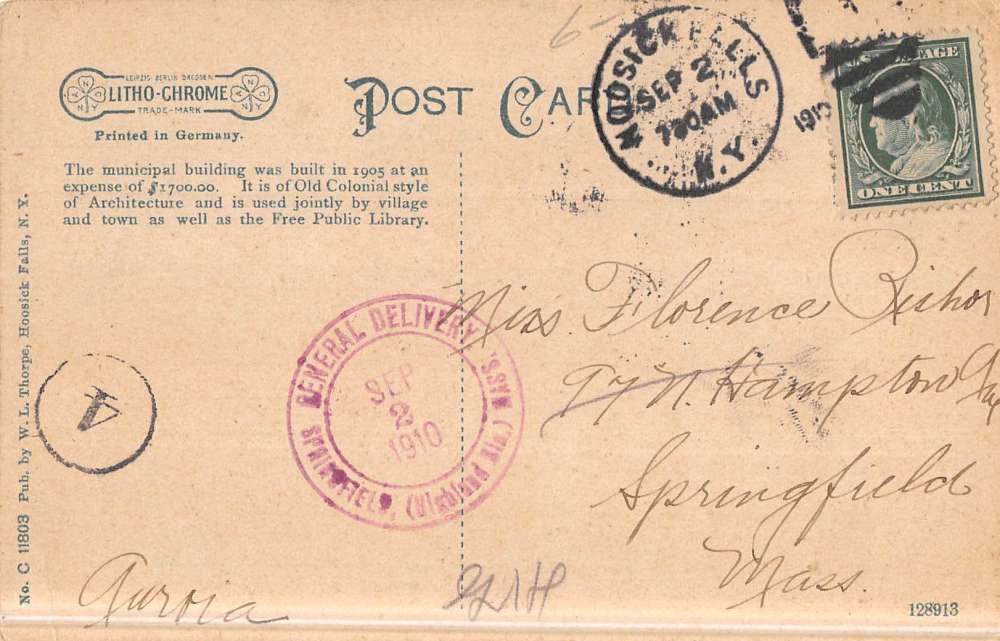 LEIPZIG BERLIN DRESDEN
LITHO-CHROME
TRADE-MARK
Printed in Germany.
POST CARD
HOOSICK FALLS
SEP 2
730AM
N.Y.
1910
U.S. POSTAGE
ONE CENT
The municipal building was built in 1905 at an
expense of $1700.00. It is of Old Colonial style
of Architecture and is used jointly by village
and town as well as the Free Public Library.
No. C 11803 Pub. by W. L. Thorpe, Hoosick Falls, N. Y.
4
GENERAL DELIVERY
SPRINGFIELD, MASS. (Highland Sta.)
SEP
1910
Miss Florence
N. Hampton
Springfield
Mass.
Aurora
128913